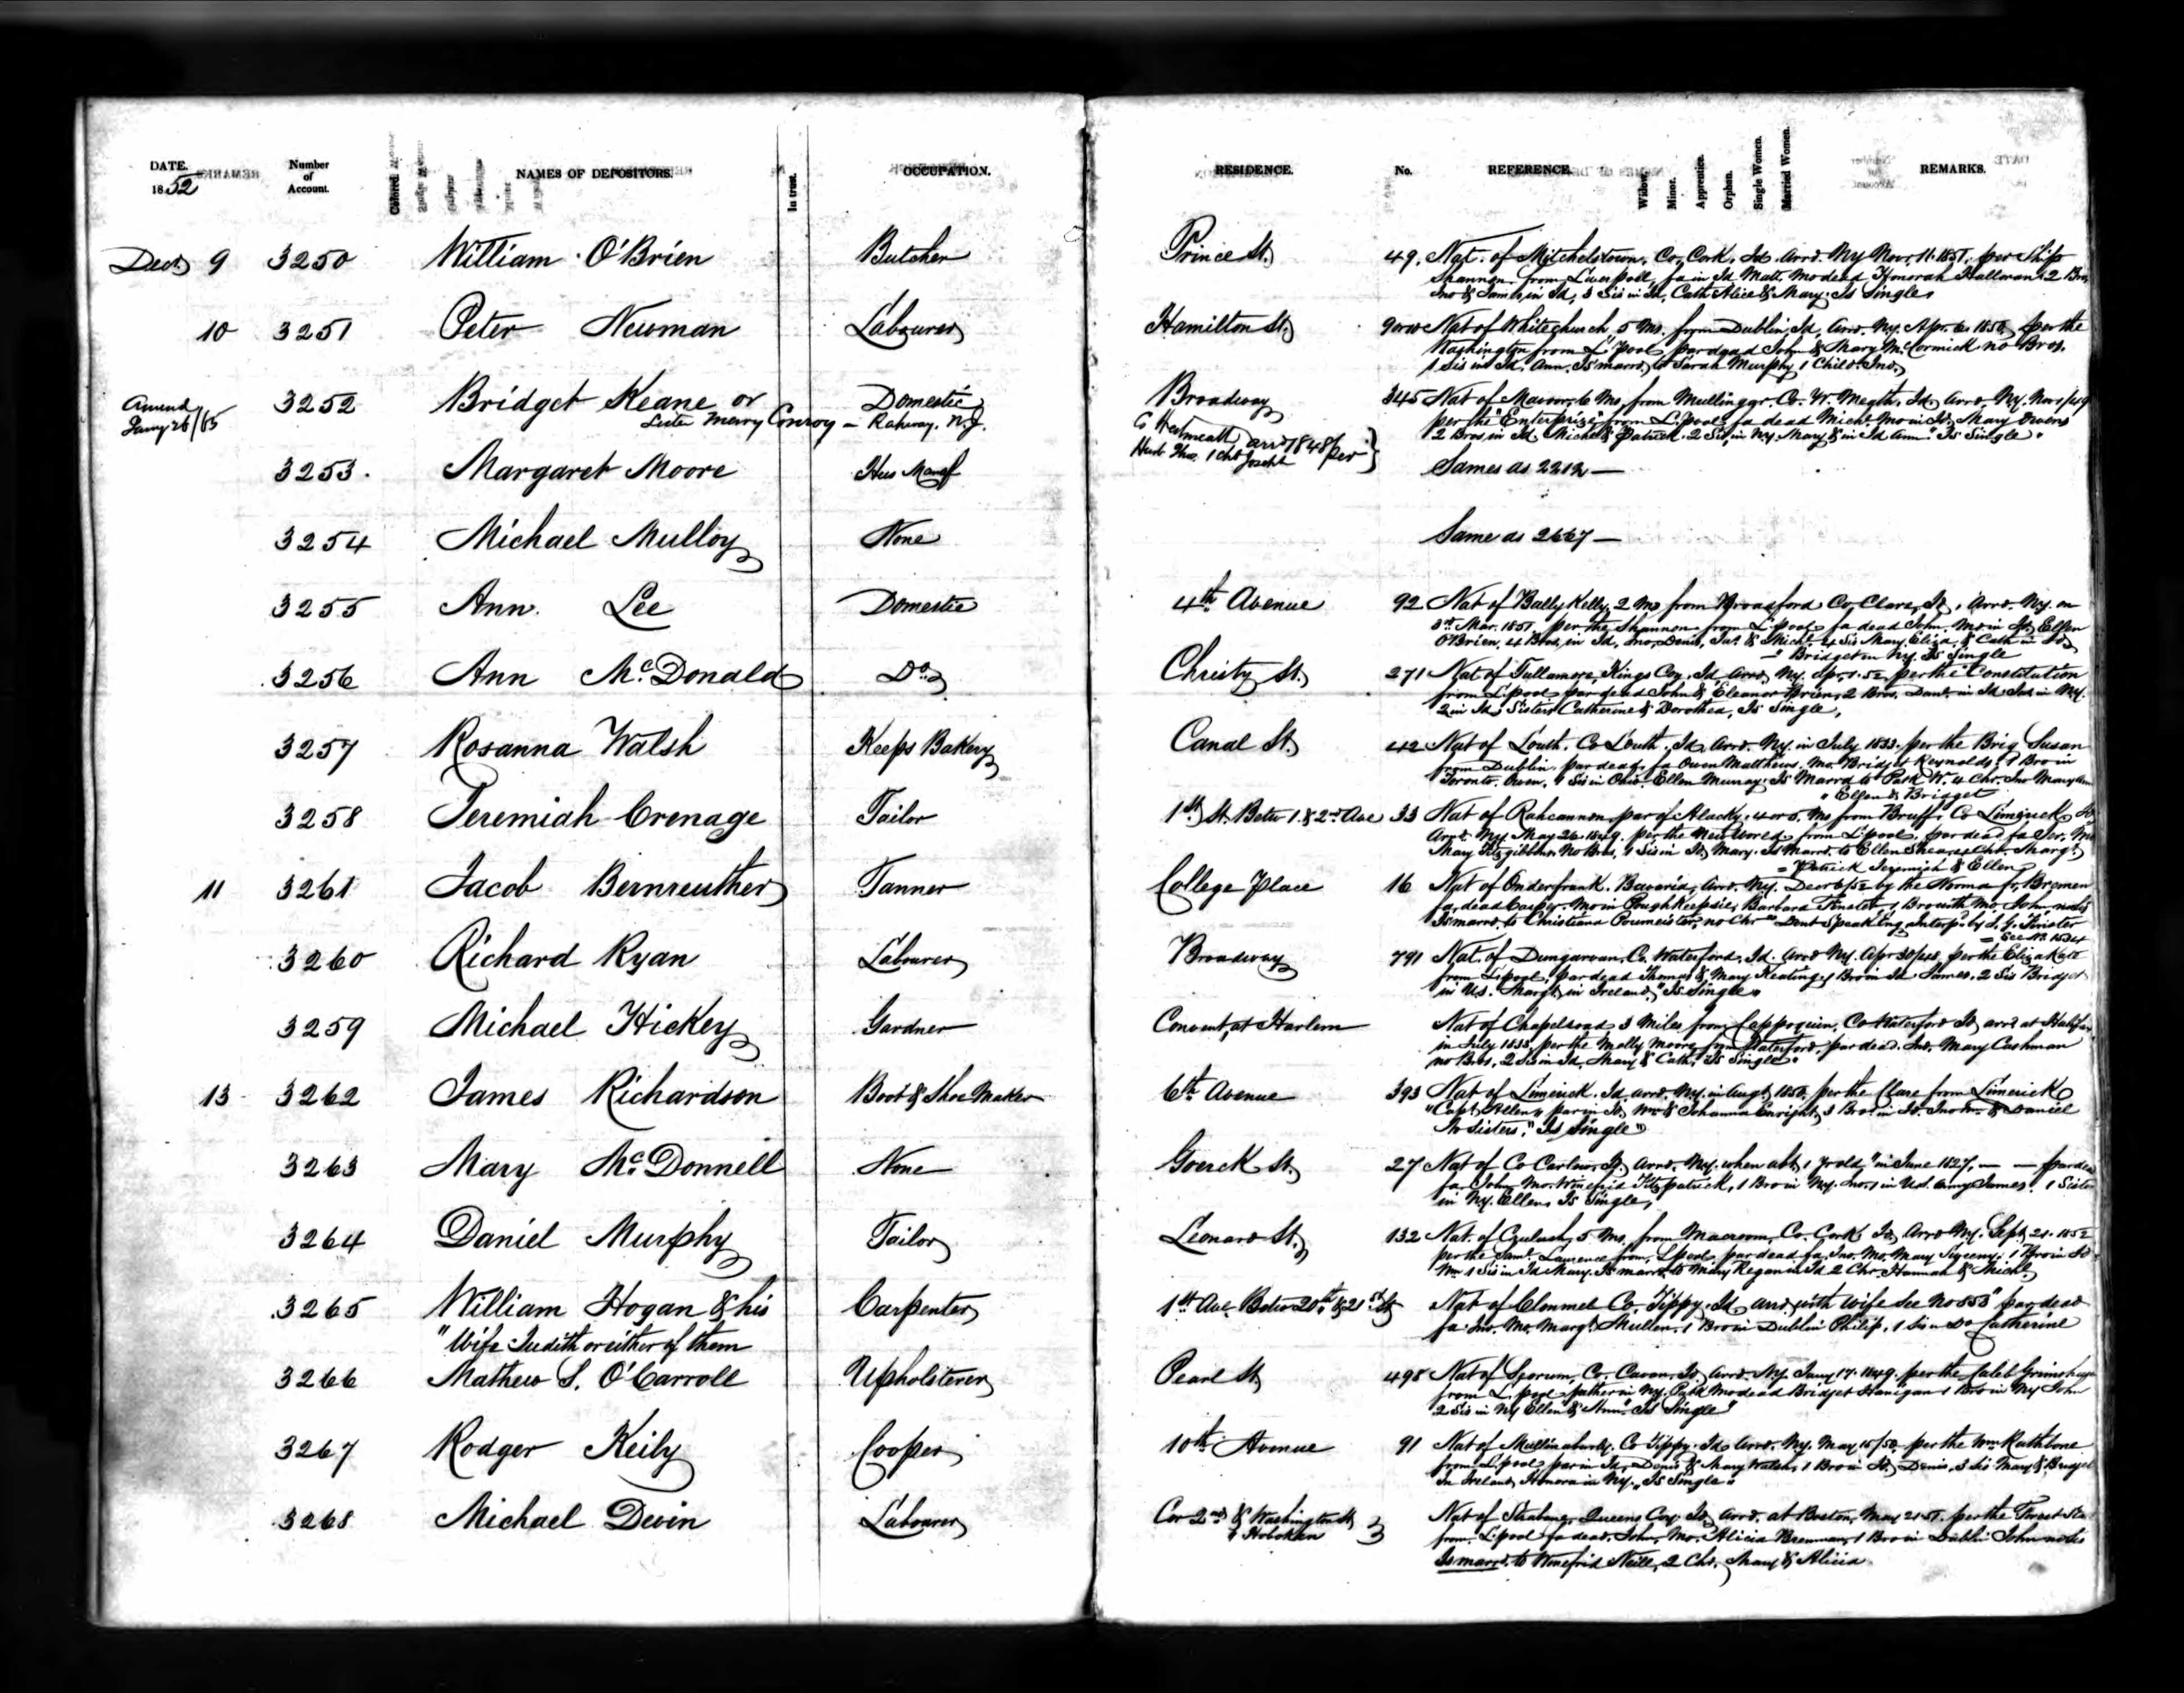 DATE. Number of Account. NAMES OF DEPOSITORS. In trust. OCCUPATION. RESIDENCE. No. REFERENCE. Widow. Minor. Apprentice. Orphan. Single Women. Married Women. REMARKS.
1852
Decr 9 3250 William O'Brien Butcher Prince St. 49. Nat. of Mitchelstown, Co. Cork, Id. Arrd. NY Nov. 11. 1851, per Ship
Shannon from Liverpool, fa in Id Matt. Mo dead Honorah Hallman 2 Bros
Jno & James in Id, 3 Sis in Id, Cath Alice & Mary. Is Single
10 3251 Peter Newman Labourer Hamilton St. Nat of Whitechurch 5 Ms. from Dublin, Id, Arrd. NY. Apr. per the
Washington from L'pool par dead John & Mary McCormick no Bros.
1 Sis in Id. Ann. Is marrd to Sarah Murphy 1 Child. Jno.
Amend Jany 26/65 3252 Bridget Keane or Domestic Broadway 345 Nat of 6 Ms. from Mullingar, Co. W. Meath, Id. Arrd. NY. Nov 1/49
Sister Mary Conroy – Rahway. N.J. per the "Enterprize" from L.pool, fa dead Michl. Mo in Id. Mary Owens
2 Bros in Id. Michl & Patrick. 2 Sis, in NY. Mary & in Id Ann. "Is Single"
Co Westmeath, arrd 1848 per
Husb Thos. 1 Chd Joseph
3253. Margaret Moore Same as 2212 —
3254 Michael Mulloy None Same as 2667 —
3255 Ann. Lee Domestic 4th Avenue 92 Nat of Bally Kelly, 2 Ms from Broadford Co, Clare, Id, Arrd. NY. on
Mar. 1851, per the Shannon from L'pool, fa dead John, Mo in Id, Ellen
O'Brien, 4 Bros, in Id, Jno, Denis, & Michl. 4 Sis Mary, Eliza, & Cath in Id,
— " Bridget in NY. Is Single
3256 Ann McDonald Do. Christy St. 271 Nat of Tullamore, Kings Coy. Id, Arrd, NY. Apr. 1. 52, per the Constitution
from L'pool par dead John & Eleanor Brien, 2 Bros. Danl. in Id in NY.
2 in Id. Sisters Catherine & Dorothea, Is Single,
3257 Rosanna Walsh Keeps Bakery Canal St. 412 Nat of Louth. Co Louth. Id, Arrd. NY. in July 1833. per the Brig Susan
from Dublin, par dead, fa Owen Matthews. Mo. Bridget Reynolds. 1 Bro in
Toronto. Owen, 1 Sis in Ohio. Ellen Murray. Is Marrd to Patk W. 4 Chr. Jno Mary Ann
" Ellen & Bridget
3258 Jeremiah Crenage Tailor 1st St. Betw 1. & 2nd Ave 33 Nat of Rahcannon, par of 4 or 5. Ms from Bruff. Co Limerick Id
Arrd. NY May 26 1849, per the New World, from L'pool, par dead fa Jer. Mo
Mary Fitzgibbon, No Bros, 1 Sis in Id, Mary. Is Marrd. to Ellen Shea, 4 Chr. Margt.
= Patrick Jeremiah & Ellen
11 3261 Jacob Bernreuther Tanner College Place 16 Nat of Onderfrank. Bavaria, Arrd. NY. Decr 6/52 by the Norma fr. Bremen
fa, dead Mo in Poughkeepsie, Barbara 1 Bro with Mo. John, no Sis
Is marrd. to Christiana no Chr " Dont Speak Eng. Interp. by
= See No. 1534
3260 Richard Ryan Labourer Broadway 791 Nat. of Dungarvan, Co. Waterford, Id. Arrd NY. Apr 30/48, per the Eliza Kate
from L'pool, par dead Thomas & Mary Keating, 1 Bro in Id James. 2 Sis Bridget
in U.S. Margt. in Ireland, "Is Single"
3259 Michael Hickey Gardner Convent, at Harlem Nat of Chapelroad 3 Miles from Cappoquin, Co Waterford Id, arrd at Halifax
in July 1833, per the Molly Moore from Waterford, par dead. Jno. Mary Cashman
no Bros. 2 Sis in Id, Mary & Cath. "Is Single"
13 3262 James Richardson Boot & Shoe Maker 6th Avenue 393 Nat of Limerick. Id, arrd. NY. in Augt 1850, per the Clare from Limerick
"Capt Allen" par in Id, Wm & Johanna Enright, 3 Bros in Id. Jno Wm. & Daniel
No Sisters, "Is Single"
3263 Mary McDonnell None Goerck St. 27 Nat of Co Carlow, Id. Arrd. NY. when abt 1 Yr old, "in June 1827, — — par dead
fa. John, Mo. Winefrid Fitzpatrick, 1 Bro in NY. Jno. 1 in U.S. Army James. 1 Sister
in NY. Ellen, Is Single,
3264 Daniel Murphy Tailor Leonard St. 132 Nat. of 5 Ms. from Macroom, Co. Cork Id, Arrd NY. Sept 21. 1852
per the Saml. Lawrence from L'pool, par dead fa, Jno. Mo, Mary 1 Bro in Id
Wm 1 Sis in Id Mary. Is marrd. to Mary Regan in Id 2 Chr. Hannah & Michl.
3265 William Hogan & his Carpenter 1st Ave Betw 20th & 21st St Nat of Clonmel Co. Tippy. Id, arrd, with wife See No 858" par dead
"Wife Judith or either of them fa Jno. Mo. Margt. Mullen. 1 Bro in Dublin Philip, 1 Sis in Do Catherine
3266 Mathew S. O'Carroll Upholsterer Pearl St. 498 Nat of Co. Cavan, Id, arrd. NY Jany 17. 1849, per the Caleb Grimshaw
from L'pool father in NY. Patk Mo dead Bridget Hanigan 1 Bro in NY John
2 Sis in NY Ellen & Ann. "Is Single"
3267 Rodger Keily Cooper 10th Avenue 91 Nat of Co Tippy. Id, arrd. NY. May 15/50, per the Wm Rathbone
from L'pool par in Id, Denis & Mary Walsh, 1 Bro in Id. Denis, 3 Sis Mary & Bridget
In Ireland, Honora in NY. "Is Single"
3268 Michael Devin Labourer Cor 2nd & Washington St 3 Nat of Queens Coy. Id, arrd. at Boston, May 21. 51. per the Forest State
Hoboken from L'pool fa dead. John, Mo. Alicia Brennan, 1 Bro in Dublin John no Sis
Is marrd. to Winefrid Neill, 2 Chr. Mary & Alicia